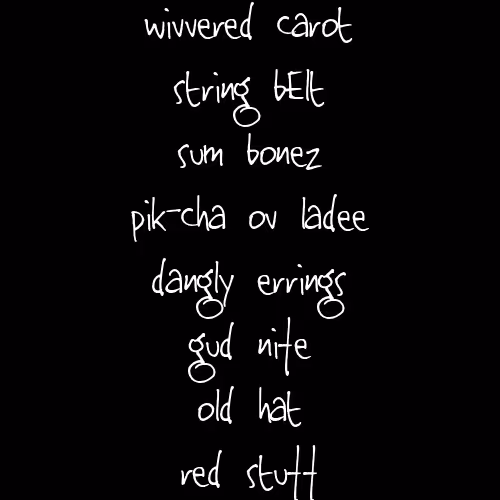 wivvered carot
string bElt
sum bonez
pik-cha ov ladee
dangly errings
gud nite
old hat
red stuff